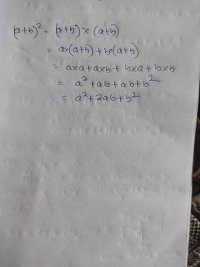 (a+b)² = (a+b) × (a+b)
= a×(a+b) + b×(a+b)
= a×a + a×b + b×a + b×b
= a² + ab + ab + b²
= a² + 2ab + b²